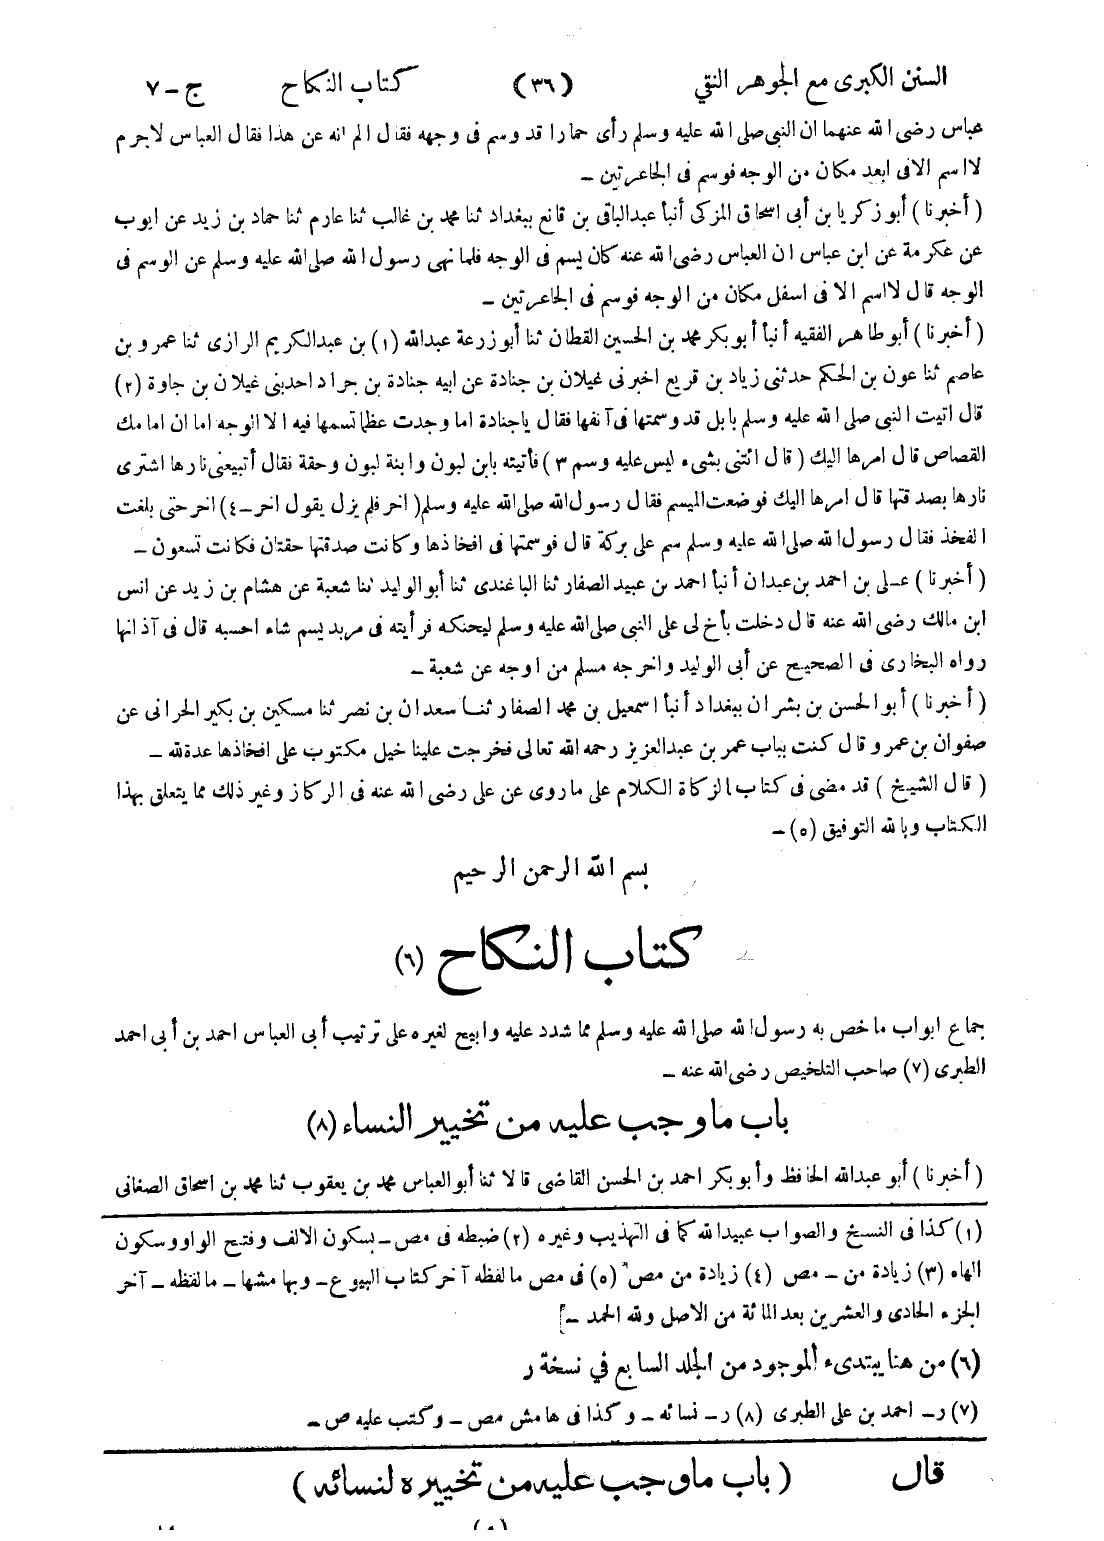 السنن الكبرى مع الجوهر النقي (٣٦) كتاب النكاح ج-٧
عباس رضى الله عنهما ان النبى صلى الله عليه وسلم رأى حمارا قد وسم فى وجهه فقال الم انه عن هذا فقال العباس لاجرم
لااسم الافى ابعد مكان من الوجه فوسم فى الجاعرتين -
(أخبرنا) أبو زكريا بن أبى اسحاق المزكى أنبأ عبدالباقى بن قانع ببغداد ثنا محمد بن غالب ثنا عارم ثنا حماد بن زيد عن ايوب
عن عكرمة عن ابن عباس ان العباس رضى الله عنه كان يسم فى الوجه فلما نهى رسول الله صلى الله عليه وسلم عن الوسم فى
الوجه قال لااسم الا فى اسفل مكان من الوجه فوسم فى الجاعرتين -
(أخبرنا) أبو طاهر الفقيه أنبأ أبو بكر محمد بن الحسين القطان ثنا أبو زرعة عبدالله (١) بن عبدالكريم الرازى ثنا عمرو بن
عاصم ثنا عون بن الحكم حدثنى زياد بن قريع اخبرنى غيلان بن جنادة عن ابيه جنادة بن جراد احدبنى غيلان بن جاوة (٢)
قال اتيت النبى صلى الله عليه وسلم بابل قد وسمتها فى آنفها فقال ياجنادة اما وجدت عظما تسمها فيه الا الوجه اما ان امامك
القصاص قال امرها اليك (قال ائتنى بشىء ليس عليه وسم ٣) فأتيته بابن لبون وابنة لبون وحقة نقال أتبيعنى نارها اشترى
نارها بصدقتها قال امرها اليك فوضعت الميسم فقال رسول الله صلى الله عليه وسلم (اخر فلم يزل يقول اخر-٤) اخر حتى بلغت
الفخذ فقال رسول الله صلى الله عليه وسلم سم على بركة قال فوسمتها فى افخاذها وكانت صدقتها حقتان فكانت تسعون -
(أخبرنا) على بن احمد بن عبدان أنبأ احمد بن عبيد الصفار ثنا الباغندى ثنا أبو الوليد ثنا شعبة عن هشام بن زيد عن انس
ابن مالك رضى الله عنه قال دخلت بأخ لى على النبى صلى الله عليه وسلم ليحنكه فرأيته فى مربد يسم شاء احسبه قال فى آذانها
رواه البخارى فى الصحيح عن أبى الوليد واخرجه مسلم من اوجه عن شعبة -
(أخبرنا) أبو الحسن بن بشران ببغداد أنبأ اسمعيل بن محمد الصفار ثنا سعدان بن نصر ثنا مسكين بن بكير الحرانى عن
صفوان بن عمرو قال كنت بباب عمر بن عبدالعزيز رحمه الله تعالى فخرجت علينا خيل مكتوب على افخاذها عدة لله -
(قال الشيخ) قد مضى فى كتاب الزكاة الكلام على ماروى عن على رضى الله عنه فى الركاز وغير ذلك مما يتعلق بهذا
الكتاب وبالله التوفيق (٥) -
بسم الله الرحمن الرحيم
كتاب النكاح (٦)
جماع ابواب ماخص به رسول الله صلى الله عليه وسلم مما شدد عليه وابيح لغيره على ترتيب أبى العباس احمد بن أبى احمد
الطبرى (٧) صاحب التلخيص رضى الله عنه -
باب ماوجب عليه من تخيير النساء (٨)
(أخبرنا) أبو عبدالله الحافظ وأبو بكر احمد بن الحسن القاضى قالا ثنا أبو العباس محمد بن يعقوب ثنا محمد بن اسحاق الصغانى
(١) كذا فى النسخ والصواب عبيدالله كما فى التهذيب وغيره (٢) ضبطه فى مص - بسكون الالف وفتح الواو وسكون
الهاء (٣) زيادة من - مص (٤) زيادة من مص (٥) فى مص مالفظه آخر كتاب البيوع - وبهامشها - مالفظه - آخر
الجزء الحادى والعشرين بعد المائة من الاصل ولله الحمد -]
(٦) من هنا يبتدىء الموجود من المجلد السابع في نسخة ر
(٧) ر- احمد بن على الطبرى (٨) ر- نسائه - وكذا فى هامش مص - وكتب عليه ص -
(باب ماوجب عليه من تخييره لنسائه) قال